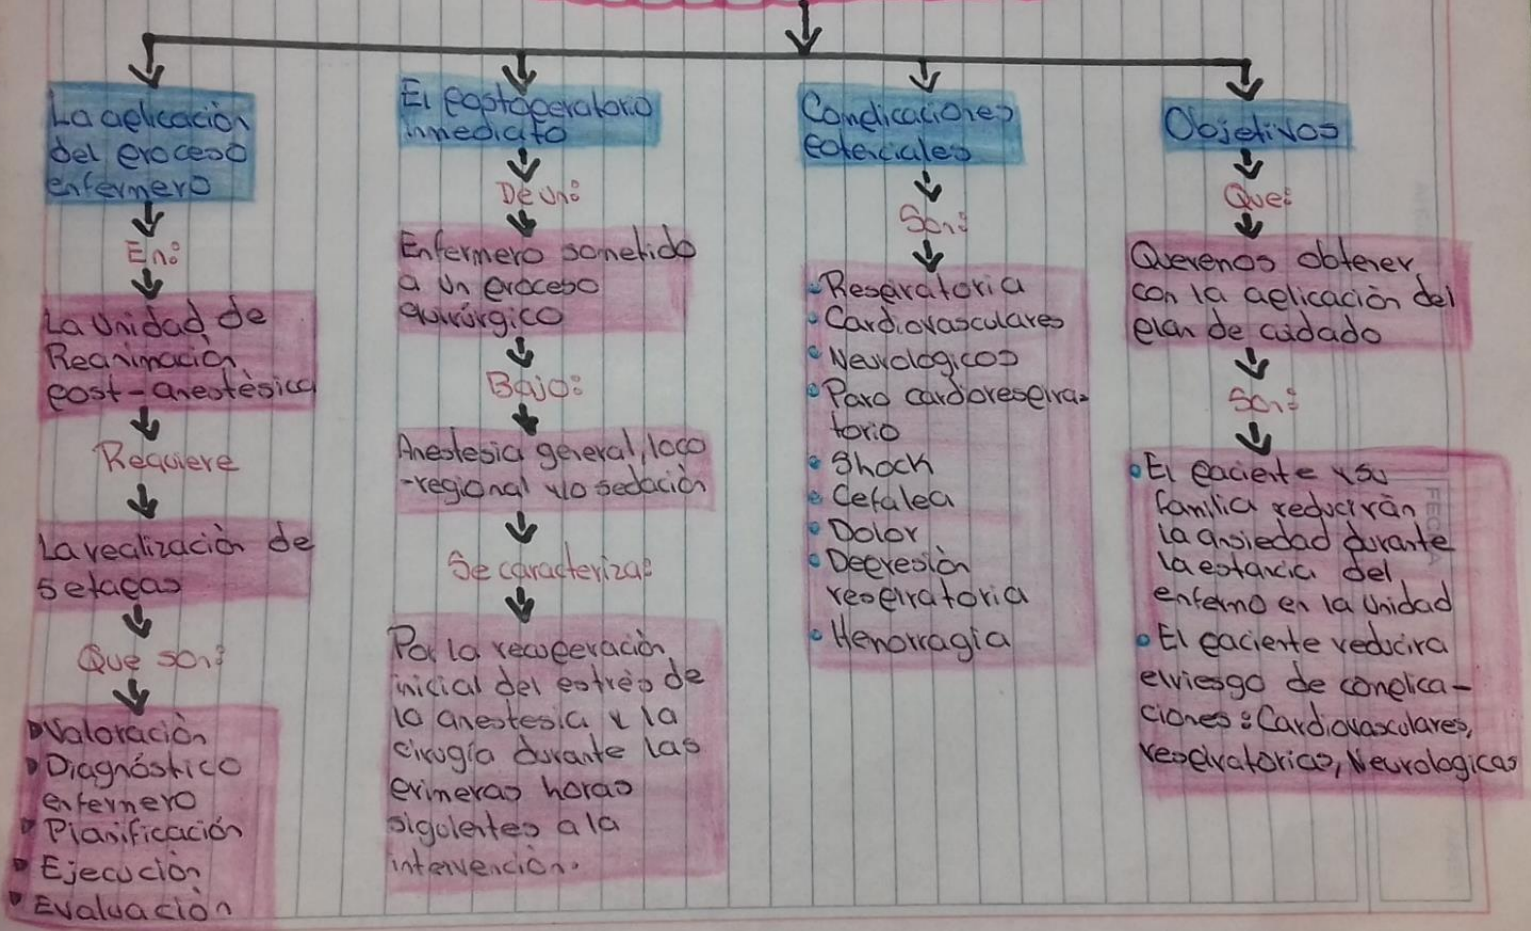 La aplicación
del proceso
enfermero
En:
La Unidad de
Reanimación
post-anestèsica
Requiere
La realización de
5 etapas
Que son:
Valoración
Diagnóstico
enfermero
Planificación
Ejecución
Evaluación
El postoperatorio
inmediato
De un:
Enfermero sometido
a un proceso
quirúrgico
Bajo:
Anestesia general, loco
-regional y/o sedación
Se caracteriza:
Por la recuperación
inicial del estrès de
la anestesia y la
cirugía durante las
primeras horas
siguientes a la
intervención.
Complicaciones
potenciales
Son:
Respiratoria
Cardiovasculares
Neurologicos
Paro cardiorespira-
torio
Shock
Cefalea
Dolor
Depresión
respiratoria
Hemorragia
Objetivos
Que:
Queremos obtener
con la aplicación del
plan de cuidado
Son:
El paciente y su
familia reducirán
la ansiedad durante
la estancia del
enfermo en la Unidad
El paciente reducira
el riesgo de complica-
ciones: Cardiovasculares,
respiratorias, Neurologicas